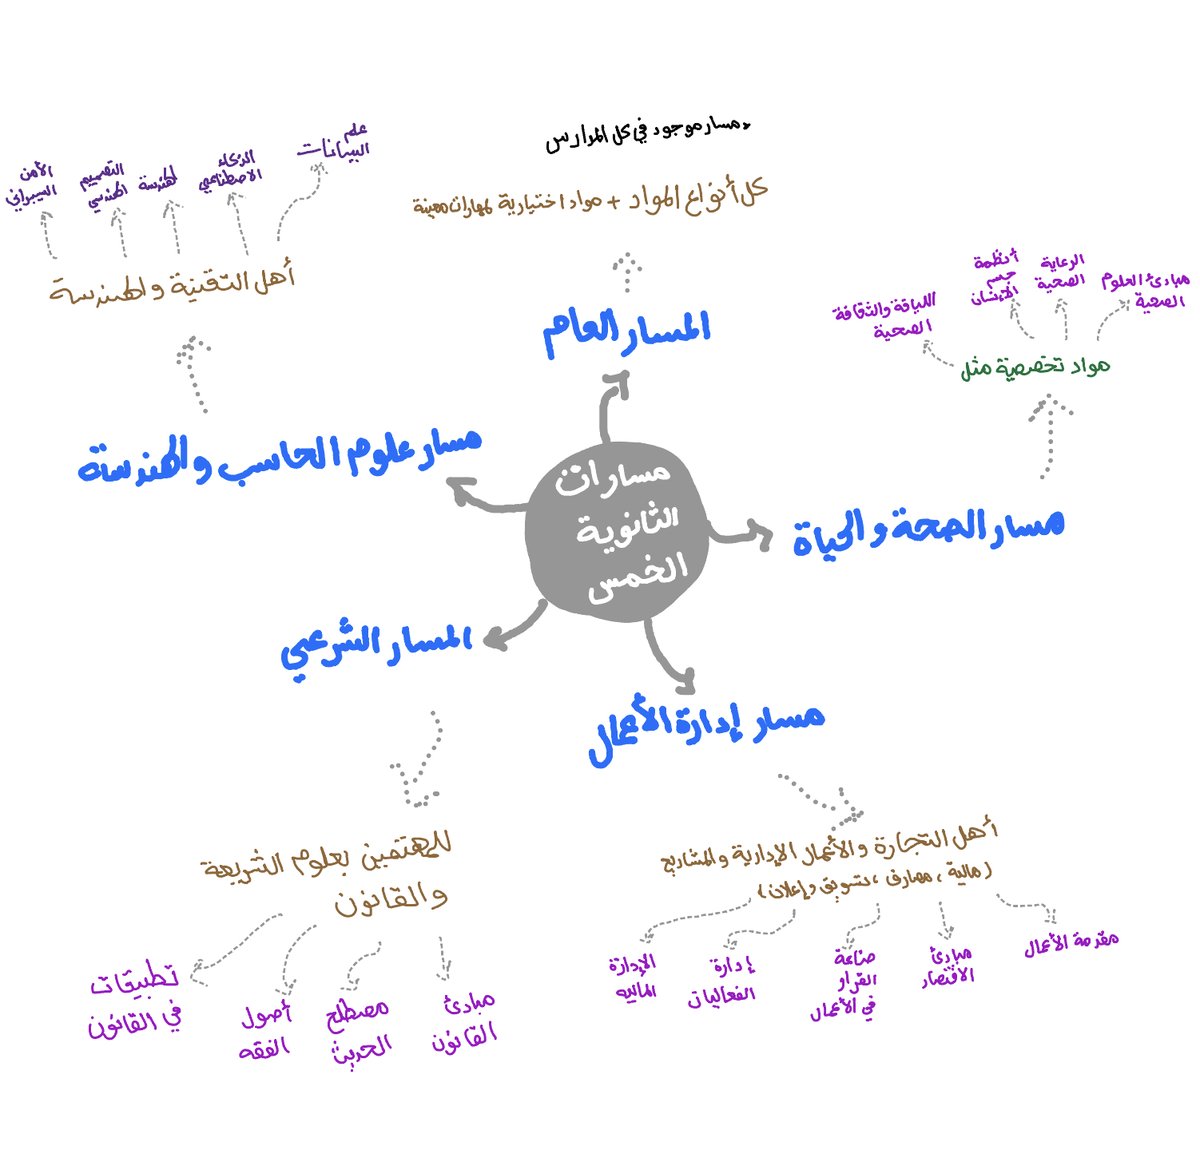 مسارات
الثانوية
الخمس
المسار العام
كل أنواع المواد + مواد اختيارية لمهارات معينة
مسار موجود في كل المدارس
مسار الصحة والحياة
مواد تخصصية مثل
مبادئ العلوم
الصحية
الرعاية
الصحية
أنظمة
جسم
الإنسان
اللياقة والثقافة
الصحية
مسار إدارة الأعمال
أهل التجارة والأعمال الإدارية والمشاريع
(مالية، مصارف، تسويق وإعلان)
مقدمة الأعمال
مبادئ
الاقتصاد
صناعة
القرار
في الأعمال
إدارة
الفعاليات
الإدارة
المالية
المسار الشرعي
للمهتمين بعلوم الشريعة
والقانون
مبادئ
القانون
مصطلح
الحديث
أصول
الفقه
تطبيقات
في القانون
مسار علوم الحاسب والهندسة
أهل التقنية والهندسة
علم
البيانات
الذكاء
الاصطناعي
الهندسة
التصميم
الهندسي
الأمن
السيبراني